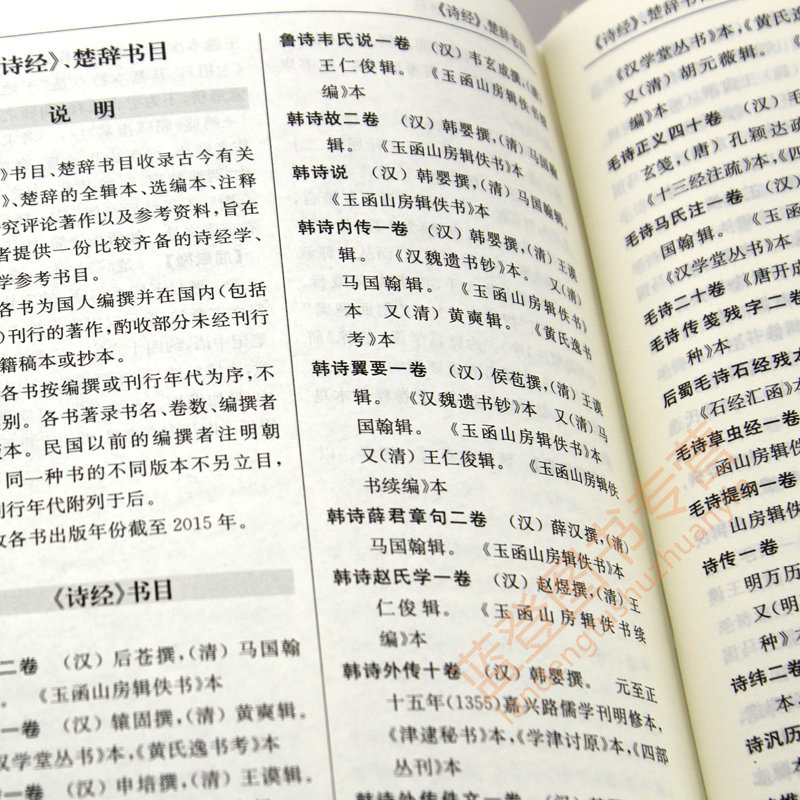 《诗经》、楚辞书目
诗经》、楚辞书目
说 明
》书目、楚辞书目收录古今有关
》、楚辞的全辑本、选编本、注释
究评论著作以及参考资料,旨在
者提供一份比较齐备的诗经学、
学参考书目。
各书为国人编撰并在国内(包括
)刊行的著作,酌收部分未经刊行
籍稿本或抄本。
各书按编撰或刊行年代为序,不
别。各书著录书名、卷数、编撰者
本。民国以前的编撰者注明朝
同一种书的不同版本不另立目,
刊行年代附列于后。
各书出版年份截至 2015 年。
《诗经》书目
二卷 (汉)后苍撰,(清)马国翰
。《玉函山房辑佚书》本
一卷 (汉)辕固撰,(清)黄奭辑。
汉学堂丛书》本,《黄氏逸书考》本
一卷 (汉)申培撰,(清)王谟辑。
鲁诗韦氏说一卷 (汉)韦玄成撰,(清)
王仁俊辑。《玉函山房辑佚书续
编》本
韩诗故二卷 (汉)韩婴撰,(清)马国翰
辑。《玉函山房辑佚书》本
韩诗说 (汉)韩婴撰,(清)马国翰辑。
《玉函山房辑佚书》本
韩诗内传一卷 (汉)韩婴撰,(清)王谟
辑。《汉魏遗书钞》本 又(清)
马国翰辑。《玉函山房辑佚书》
本 又(清)黄奭辑。《黄氏逸书
考》本
韩诗翼要一卷 (汉)侯苞撰,(清)王谟
辑。《汉魏遗书钞》本 又(清)马
国翰辑。《玉函山房辑佚书》本
又(清)王仁俊辑。《玉函山房辑佚
书续编》本
韩诗薛君章句二卷 (汉)薛汉撰,(清)
马国翰辑。《玉函山房辑佚书》本
韩诗赵氏学一卷 (汉)赵煜撰,(清)王
仁俊辑。《玉函山房辑佚书续
编》本
韩诗外传十卷 (汉)韩婴撰。 元至正
十五年(1355)嘉兴路儒学刊明修本,
《津逮秘书》本,《学津讨原》本,《四部
丛刊》本
韩诗外传佚文一卷
《诗经》、楚辞书目
《汉学堂丛书》本,《黄氏逸
又(清)胡元薇辑。《玉
编》本
毛诗正义四十卷 (汉)毛
玄笺,(唐)孔颖达疏
《十三经注疏》本,《四
毛诗马氏注一卷 (汉)
国翰辑。《玉函
《汉学堂丛书》本
毛诗二十卷 《唐开成
毛诗传笺残字二卷
种》本
后蜀毛诗石经残本
《石经汇函》本
毛诗草虫经一卷
函山房辑佚
毛诗提纲一卷
山房辑佚
诗传一卷
明万历
又(明
种》本
诗纬二卷
本
诗汎历
蓝登图书专营
landengtushuzhuanying